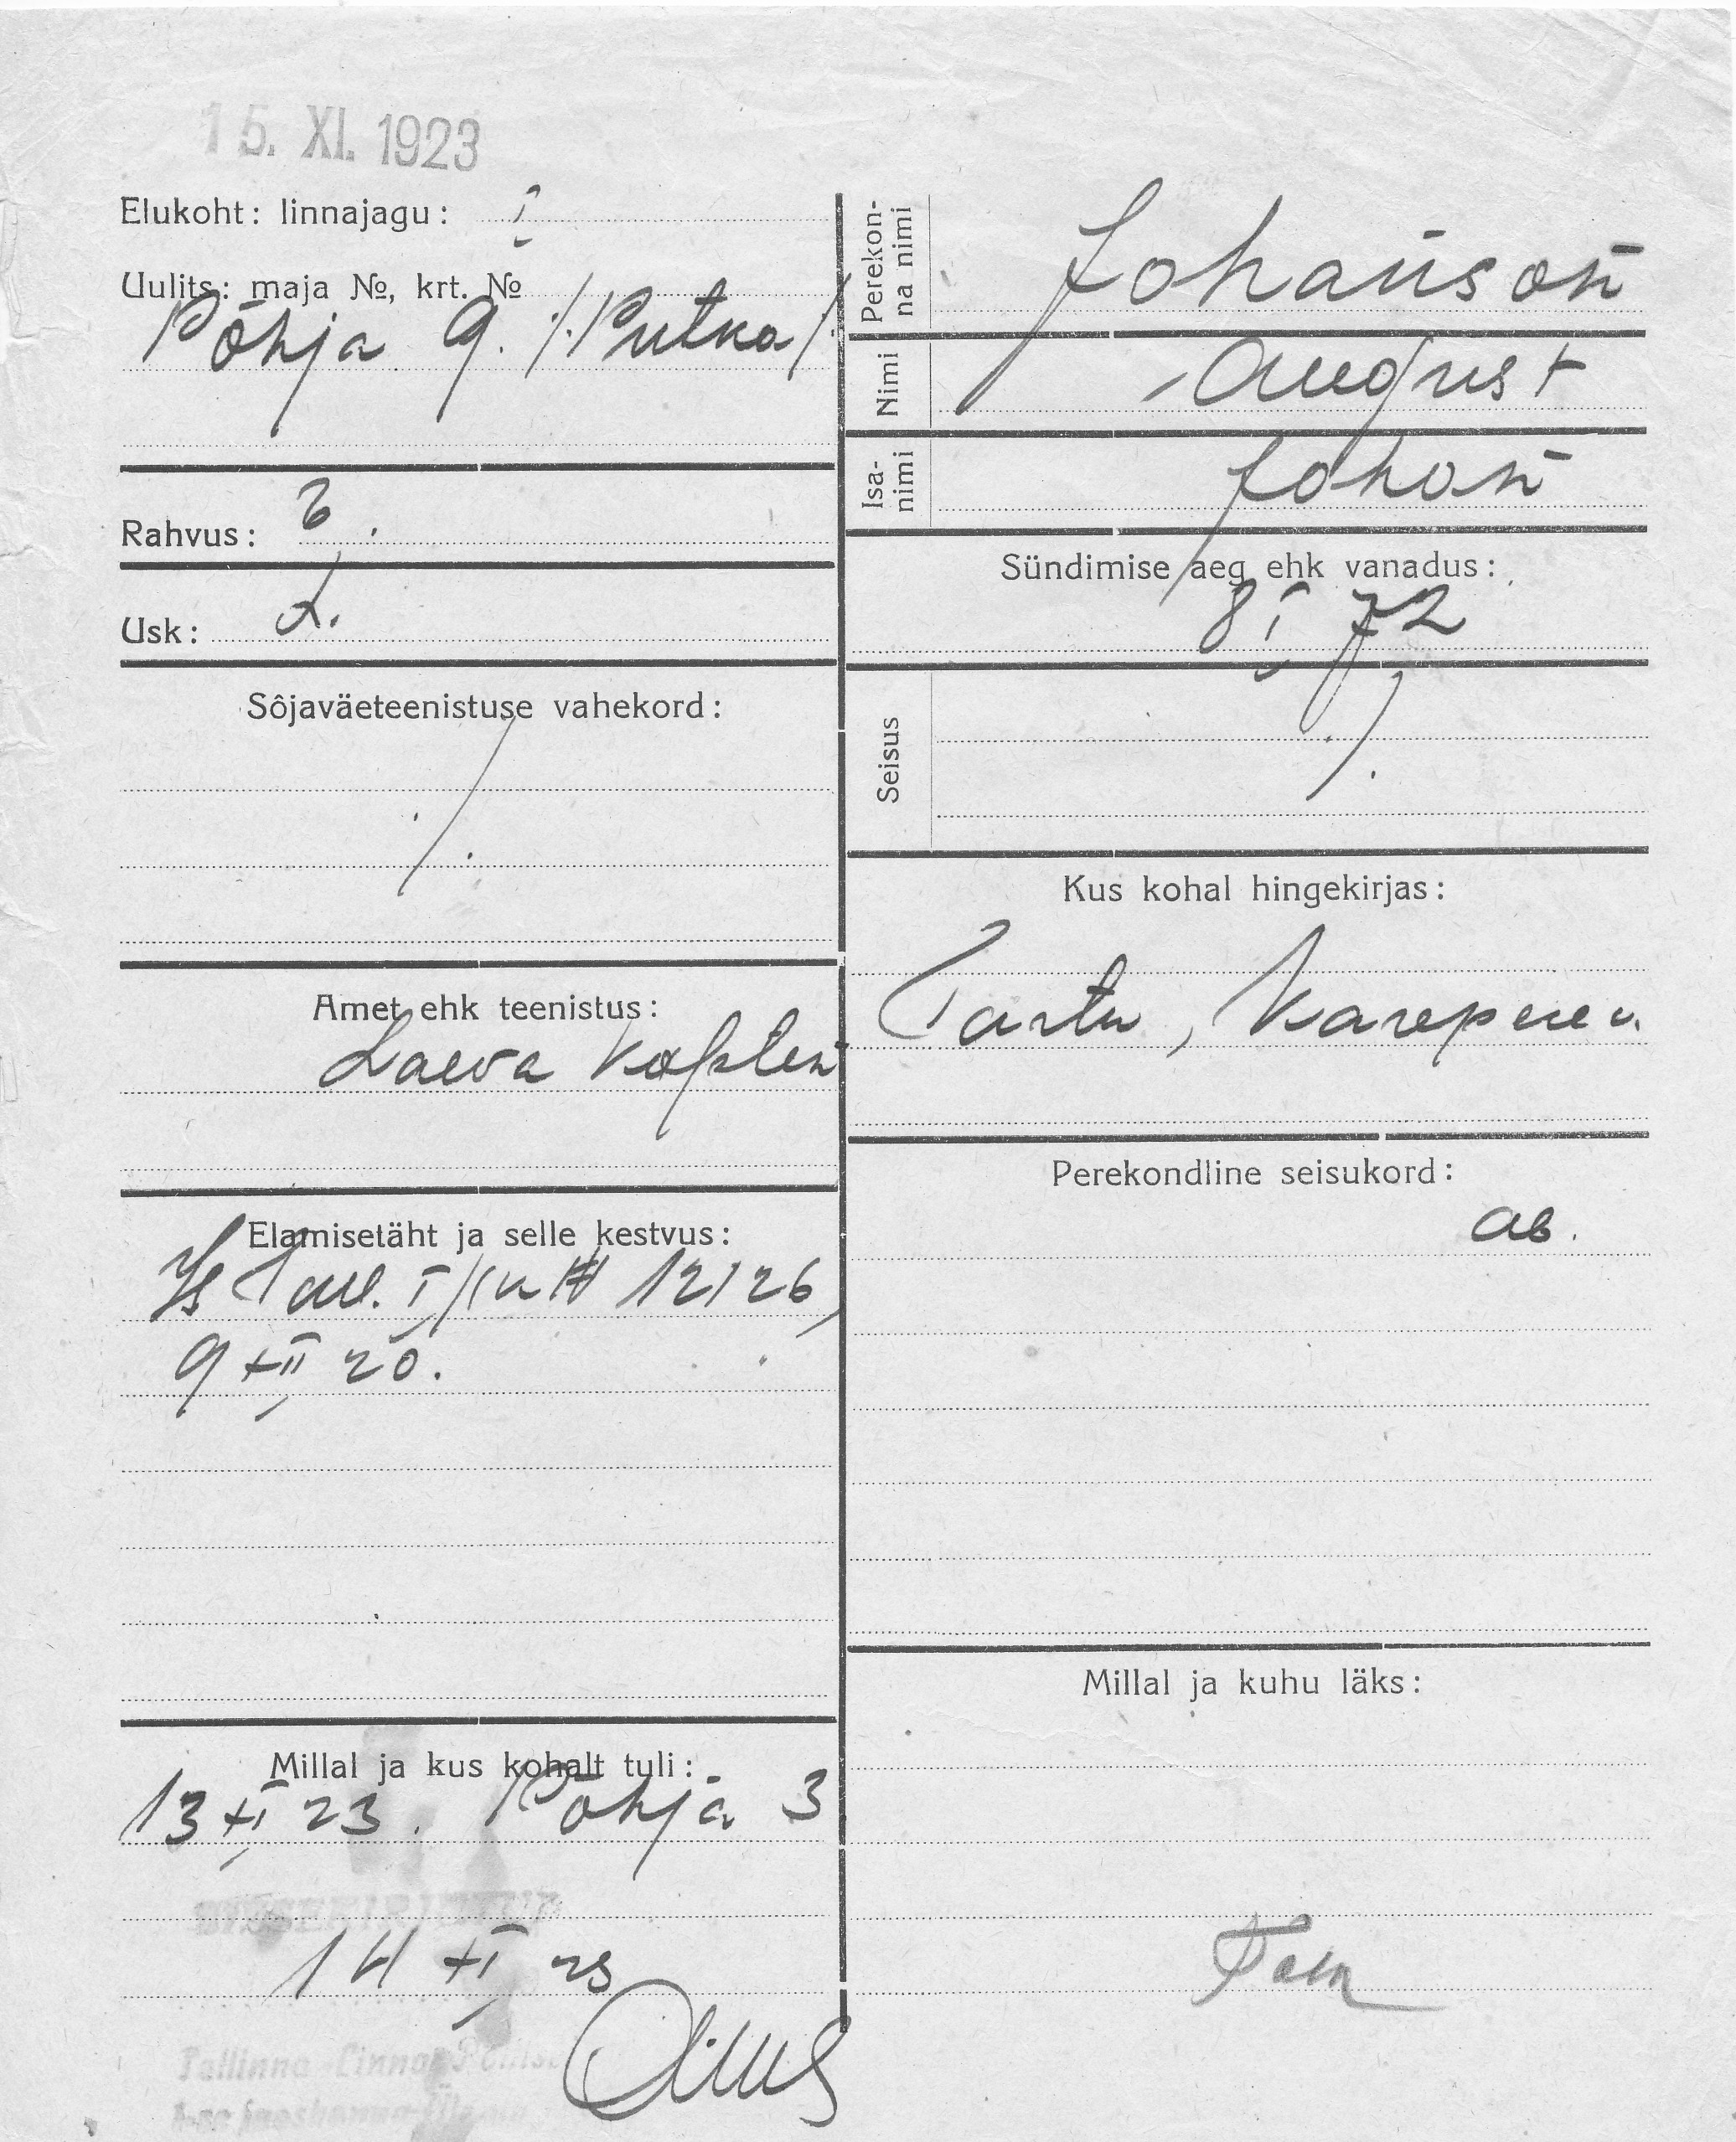 15. XI. 1923
Elukoht: linnajagu: I
Uulits: maja №, krt. №
Põhja 9. /Putka/
Rahvus: E.
Usk: L.
Sõjaväeteenistuse vahekord:
./.
Amet ehk teenistus:
Laeva kapten
Elamisetäht ja selle kestvus:
Is Tall. I № 12126
9 XII 20.
Millal ja kus kohalt tuli:
13 XI 23. Põhja 3
SISSEKIRJUTUD
14 XI 23
Tallinna Linna Politsei
Perekonna nimi Johanson
Nimi August
Isanimi Johan
Sündimise aeg ehk vanadus:
8 I 72
Seisus
./.
Kus kohal hingekirjas:
Tartu, Karepere v.
Perekondline seisukord:
ab.
Millal ja kuhu läks: